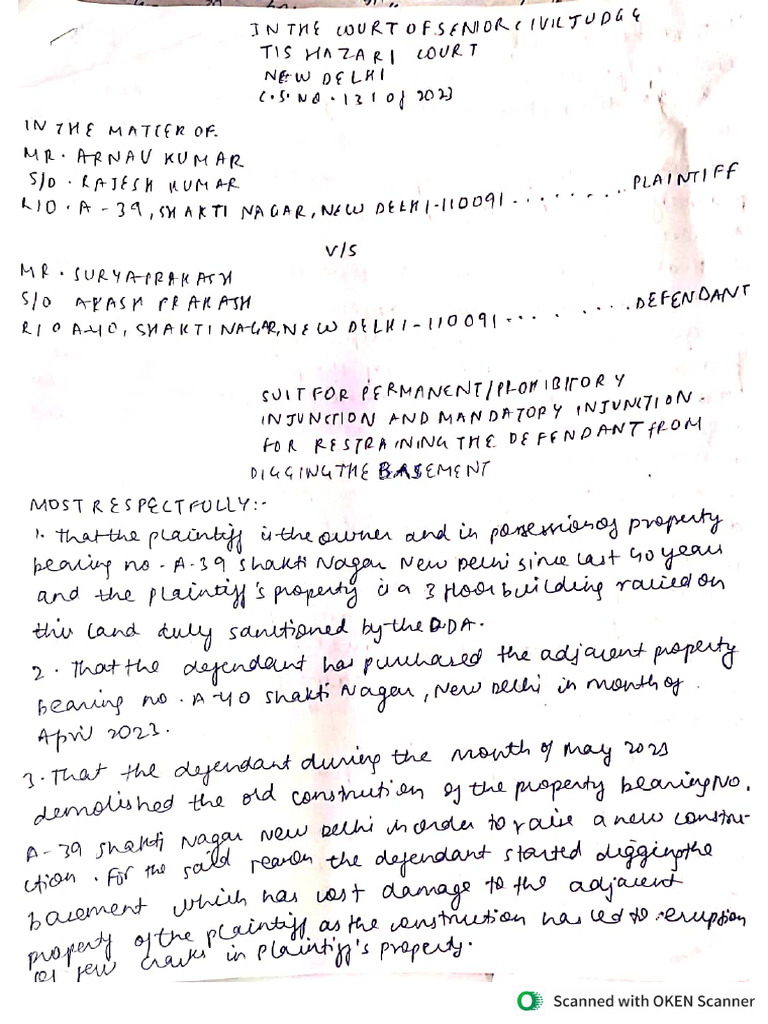 IN THE COURT OF SENIOR CIVIL JUDGE
TIS HAZARI COURT
NEW DELHI
C.S. NO. 131 of 2023
IN THE MATTER OF.
MR. ARNAV KUMAR
S/O. RAJESH KUMAR
R/O. A-39, SHAKTI NAGAR, NEW DELHI-110091 ......... PLAINTIFF
V/S
MR. SURYAPRAKASH
S/O AKASH PRAKASH
R/O A-40, SHAKTI NAGAR, NEW DELHI-110091 ........ DEFENDANT
SUIT FOR PERMANENT/PROHIBITORY
INJUNCTION AND MANDATORY INJUNCTION.
FOR RESTRAINING THE DEFENDANT FROM
DIGGING THE BASEMENT
MOST RESPECTFULLY:-
1. That the plaintiff is the owner and in possession of property
bearing no. A-39 Shakti Nagar New Delhi since last 40 years
and the plaintiff's property is a 3 floor building raised on
this land duly sanctioned by the DDA.
2. That the defendant has purchased the adjacent property
bearing no. A-40 Shakti Nagar, New Delhi in month of
April 2023.
3. That the defendant during the month of May 2023
demolished the old constrution of the property bearing No.
A-39 Shakti Nagar New Delhi in order to raise a new constru-
ction. For the said reason the defendant started digging the
basement which has cost damage to the adjacent
property of the plaintiff as the construction has led to eruption
of few cracks in plaintiff's property.
Scanned with OKEN Scanner